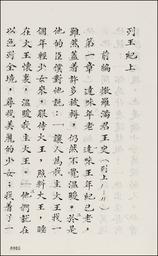 列王紀上
前編 撒羅滿君王史
第一章 達味年老 達味王年紀已老，
雖然蓋着許多被褥，仍然不覺溫暖。於是
他的臣僕對他說：「讓人為我主大王找一
個年輕少女來，服侍大王，照料大王，睡
在大王懷裏，溫暖我主大王。」他們就在
以色列全境，尋找美麗的少女；找着了一